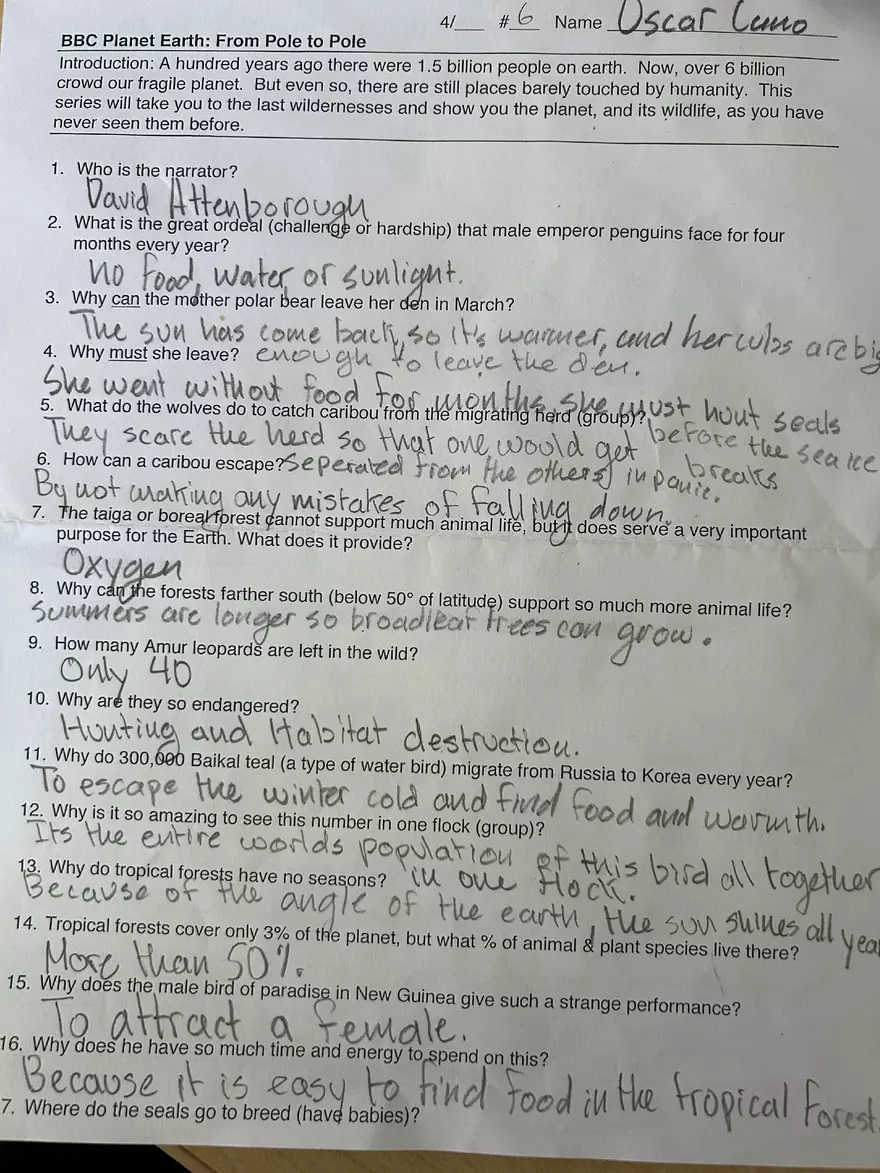 4/___ #6 Name Oscar Luno
BBC Planet Earth: From Pole to Pole
Introduction: A hundred years ago there were 1.5 billion people on earth. Now, over 6 billion
crowd our fragile planet. But even so, there are still places barely touched by humanity. This
series will take you to the last wildernesses and show you the planet, and its wildlife, as you have
never seen them before.
1. Who is the narrator?
David Attenborough
2. What is the great ordeal (challenge or hardship) that male emperor penguins face for four
months every year?
No food, water or sunlight.
3. Why can the mother polar bear leave her den in March?
The sun has come back, so it's warmer, and her cubs are big
enough to leave the den.
4. Why must she leave?
She went without food for months she must hunt seals
before the sea ice
breaks
5. What do the wolves do to catch caribou from the migrating herd (group)?
They scare the herd so that one would get
seperated from the others in panic.
6. How can a caribou escape?
By not making any mistakes of falling down.
7. The taiga or boreal forest cannot support much animal life, but it does serve a very important
purpose for the Earth. What does it provide?
Oxygen
8. Why can the forests farther south (below 50° of latitude) support so much more animal life?
Summers are longer so broadleaf trees can grow.
9. How many Amur leopards are left in the wild?
Only 40
10. Why are they so endangered?
Hunting and Habitat destruction.
11. Why do 300,000 Baikal teal (a type of water bird) migrate from Russia to Korea every year?
To escape the winter cold and find food and warmth.
12. Why is it so amazing to see this number in one flock (group)?
Its the entire worlds population of this bird all together
in one flock.
13. Why do tropical forests have no seasons?
Because of the angle of the earth, the sun shines all year
14. Tropical forests cover only 3% of the planet, but what % of animal & plant species live there?
More than 50%.
15. Why does the male bird of paradise in New Guinea give such a strange performance?
To attract a female.
16. Why does he have so much time and energy to spend on this?
Because it is easy to find food in the tropical forest.
7. Where do the seals go to breed (have babies)?